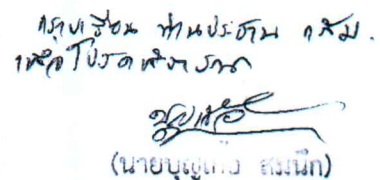 กราบเรียน ท่านประธาน กสม.
เพื่อโปรดพิจารณา
(นายบุญเกื้อ สมนึก)